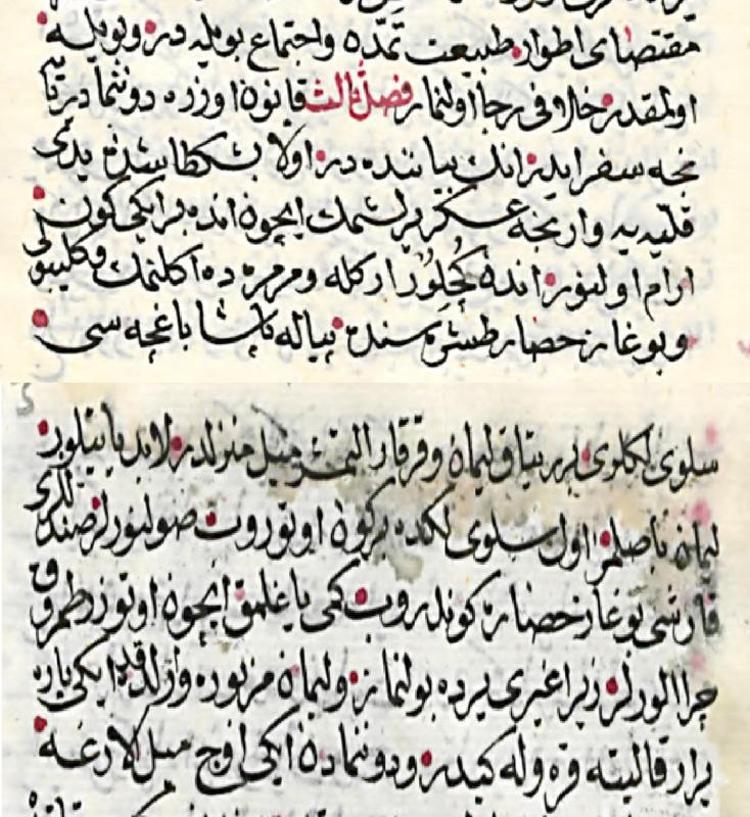 مقتضای اطوار طبیعت تمدّه واجتماع بویله در وبویله
اولمقدر خلافی رجا اولنماز فصل ثالث قانون اوزره دوننما در تا
نجه سفر ایدر انك بیاننده در اولا بشكطاشدن یدی
قلیه یه وارنجه عسكر یرلشمك ایچون انده بر ایكی كون
ارام اولنور انده ارکله ومرمره ده اكلنمك وكلیبولی
وبوغاز حصار طشره سنده پیاله پاشا باغچه سی
سلوی لكلوی بربر یتاق لیمان وقرقار التمشر میل منزلدر لاند یا بیتلور
لیمانه باصلمز اول سلوی لكده بر كون اوتوروب صو لنورلر صندللری
قارشی بوغاز حصارنه كوندروب كمی یاغلمق ایچون اوتوزر طمروق
چرا الورلر زیرا غیری یرده بولنماز ولیمان مزبوره وارلدقده ایكی یاره
برار قالیته قره وله كیدر ودوننمادن ایكی اوچ میل لارغه